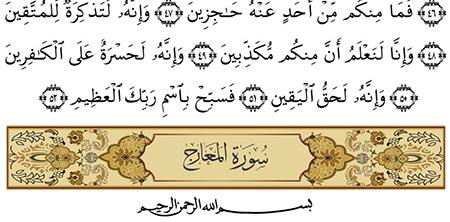 ﴿٤٦﴾ فَمَا مِنكُم مِّنْ أَحَدٍ عَنْهُ حَـٰجِزِينَ ﴿٤٧﴾ وَإِنَّهُۥ لَتَذْكِرَةٌ لِّلْمُتَّقِينَ
﴿٤٨﴾ وَإِنَّا لَنَعْلَمُ أَنَّ مِنكُم مُّكَذِّبِينَ ﴿٤٩﴾ وَإِنَّهُۥ لَحَسْرَةٌ عَلَى ٱلْكَـٰفِرِينَ
﴿٥٠﴾ وَإِنَّهُۥ لَحَقُّ ٱلْيَقِينِ ﴿٥١﴾ فَسَبِّحْ بِٱسْمِ رَبِّكَ ٱلْعَظِيمِ ﴿٥٢﴾
سُورَةُ المَعَارِج
بسم الله الرحمن الرحيم